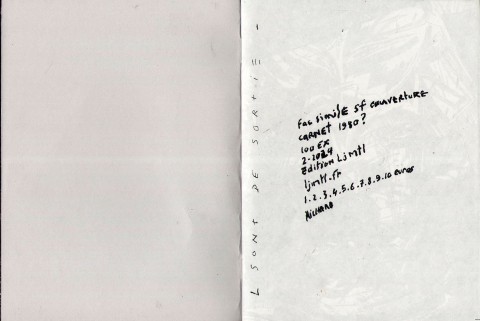 L SONT DE SORTIE -
Fac similE Sf COUVERTURE
CARNET 1980?
100 EX
2-2024
Edition Ljmtl
ljmtl.fr
1.2.3.4.5.6.7.8.9.10 euros